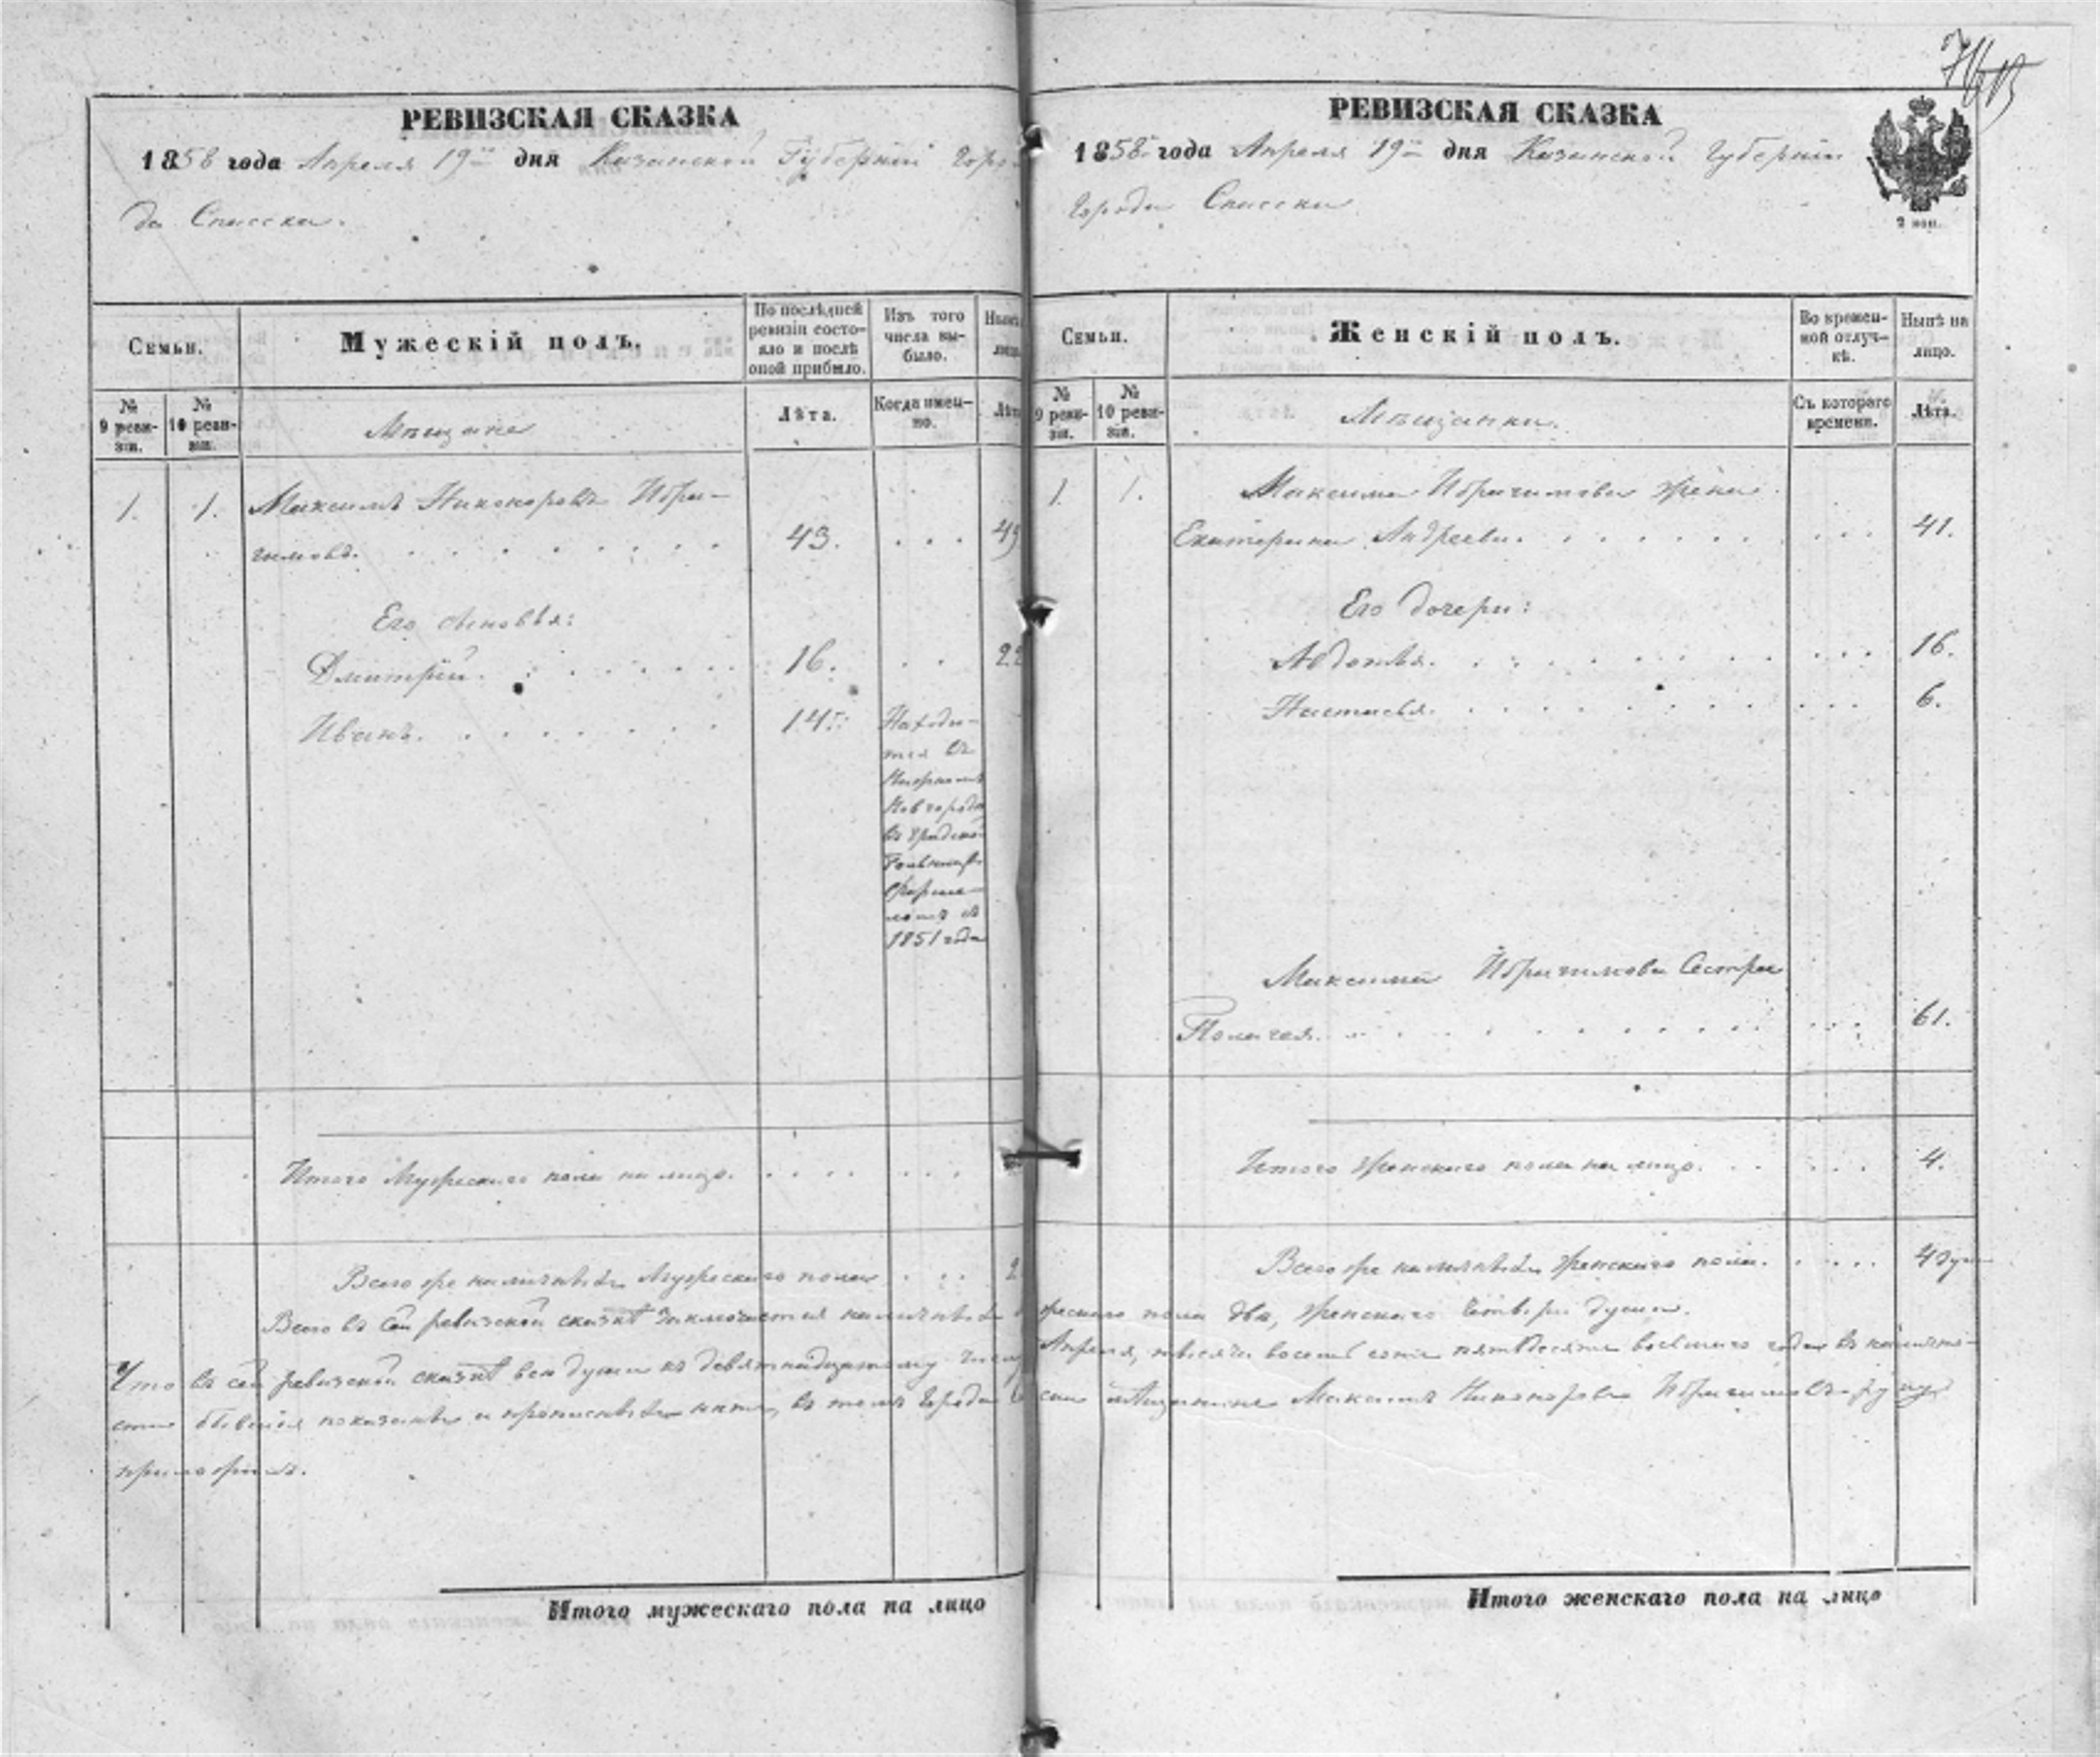 РЕВИЗСКАЯ СКАЗКА
1858 года Апреля 19го дня Казанской Губернiи Горо-
да Спасска.
Семьи.
Мужескiй полъ.
По послѣдней ревизiи состо-яло и послѣ оной прибыло.
Изъ того числа вы-было.
№ 9 реви-зiи.
№ 10 реви-зiи.
Мѣщане
Лѣта.
Когда имен-но.
Лѣта
1. 1. Максимъ Никоноровъ Ибра-
гимовъ. 43. 49
Его сыновья:
Дмитрiй. 16. 22
Иванъ. 14.
Находи-
тся въ
Нижнемъ
Новгородѣ
въ градской
больницѣ
1851 года
Итого Мужескаго пола на лицо.
Всего же наличныхъ Мужескаго пола 2
РЕВИЗСКАЯ СКАЗКА
1858 года Апреля 19го дня Казанской Губернiи
Города Спасска
2 коп.
Семьи.
Женскiй полъ.
Во времен-ной отлуч-кѣ.
Нынѣ на лицо.
№ 9 реви-зiи.
№ 10 реви-зiи.
Мѣщанки.
Съ котораго времени.
Лѣта.
1. 1. Максима Ибрагимова жена
Екатерина Андреева. 41.
Его дочери:
Авдотья. 16.
Настасья. 6.
Максима Ибрагимова Сестра
Пелагея. 61.
Итого Женскаго пола на лицо. 4.
Всего же наличныхъ женскаго пола. 4 душ
Всего въ сей ревизской сказкѣ заключается наличныхъ жескаго пола два, женскаго четыре души.
Что въ сей ревизской сказкѣ все души къ девятнадцатому числу Апреля, тысяча восемь сотъ пятьдесятъ восьмаго года въ налично-
сти бывшiя показаны и прописныхъ нѣтъ, въ томъ Города мѣщанинъ Максимъ Никоноровъ Ибрагимовъ руку
приложилъ.
Итого мужескаго пола на лицо
Итого женскаго пола на лицо